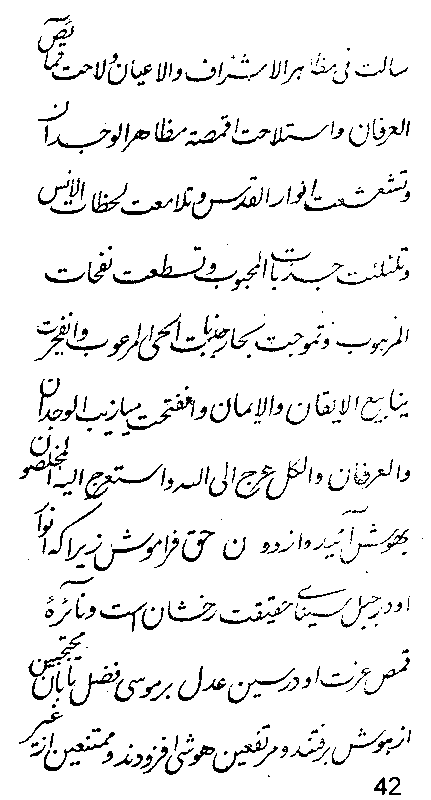 سالت فی مظاهر الاشراف والاعیان ولاحت قمایص
العرفان واستلاحت اقمصة مظاهر الوجدان
وتشعشعت انوار القدس وتلامعت لحظات الانس
وتلئلئت جذبات المحبوب وتسطعت نفحات
المرهوب وتموجت بحار جذبات الحی المرعوب وانفجرت
ینابیع الایقان والایمان وانفتحت میازیب الوجدان
والعرفان والکل عرج الی الله واستعرج الیه المخلصون
بهوش آئید واز دون حق فراموش زیرا که انوار
او در جبل سینای حقیقت رخشان است ونآئرهٔ
قمص عزت او در سین عدل بر موسی فضل تابان محتجبین
از هوش برفتند و مرتفعین هوشی افزودند وممتنعین از غیر
42